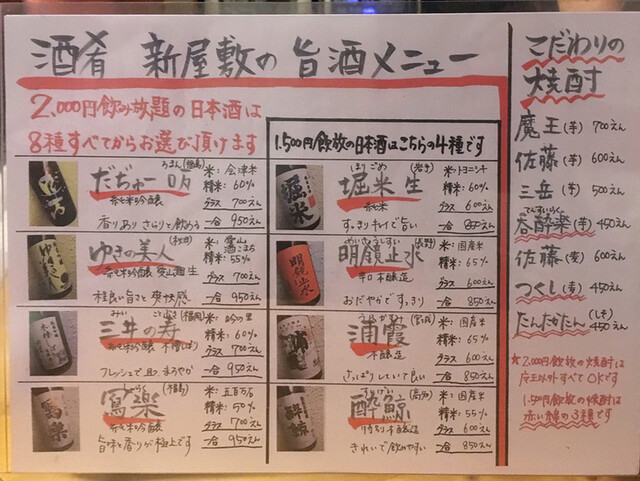 酒肴 新屋敷の旨酒メニュー
2,000円飲み放題の日本酒は
8種すべてからお選び頂けます
だぢゅー
米:会津米
精米:60%
純米吟醸
グラス 700えん
香りあり さらりと飲める
一合 950えん
ゆきの美人
(秋田)
精米:55%
グラス 700えん
一合 950えん
みい ことぶき (福岡)
三井の寿
米:吟の里
精米:60%
グラス 700えん
フレッシュで且つまろやか
一合 950えん
(福島)
寫楽
米:五百万石
精米:50%
純米吟醸
グラス 700えん
旨味と香りが極上です
一合 950えん
1,500円飲放の日本酒はこちらの4種です
ほりごめ
堀米 生
米:トヨニシキ
精米:60%
純米
グラス 600えん
すっきりキレイで旨い
一合 850えん
めいきょうしすい (長野)
明鏡止水
米:国産米
精米:65%
辛口 本醸造
グラス 600えん
おだやかですっきり
一合 850えん
うらかすみ (宮城)
浦霞
米:国産米
精米:65%
本醸造
グラス 600えん
さっぱりしていて良い
一合 850えん
(高知)
酔鯨
米:国産米
精米:55%
特別本醸造
グラス 600えん
きれいで飲みやすい
一合 850えん
こだわりの
焼酎
魔王(芋) 700えん
佐藤(芋) 600えん
三岳(芋) 500えん
てんすいらく
呑酔楽(芋) 450えん
佐藤(麦) 600えん
つくし(麦) 450えん
たんたかたん(しそ) 450えん
★2,000円飲放の焼酎は
魔王以外すべてOKです
1,500円飲放の焼酎は
赤い線の3種です